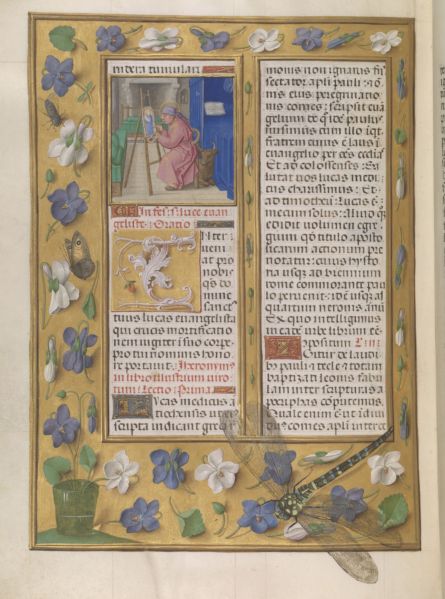 In festo s. luce euan
geliste Oratio
Nter
ueni
at pro
nobis
qs do
mine
sanct
tuus lucas euangelista
qui crucis mortificatio
nem iugiter i suo corpe
pro tui nominis hono
re portauit. Iheronimus
in libro illustrium viro
rum Lectio Prima
Lucas medicus a
tiochensis ut eius
scripta indicant greci
monis non ignarus fuit
sectator apli pauli et o
nis eius peregrinatio
nis comes scripsit euan
gelium de quo ide paulus
misimus cum illo iqt
fratrem cuius e laus i
euangelio per oes ecclias
Et ad colossenses Sa
lutat uos lucas medi
cus charissimus Et
ad timotheu Lucas e
mecum solus Aliud quoq
edidit volumen egre
gium qd titulo aposto
licarum actionum pre
notatur cuius hysto
ria usque ad biennium
rome commorante pau
lo peruenit ide usque ad
quartum neronis annu
Ex quo intelligimus
in eade urbe librum co
positum
Igitur
pauli et tecle et totam
baptizati leonis fabu
lam inter scripturas a
pocriphas coputemus
Quale enim e ut idiui
duus comes apli inter